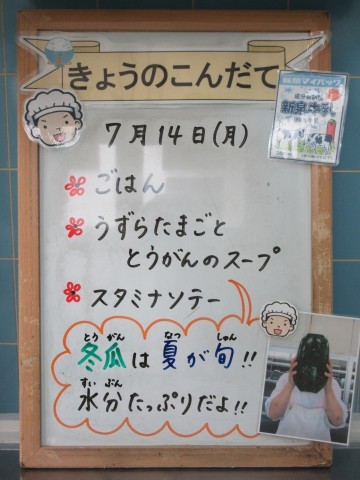 きょうのこんだて
7月14日(月)
ごはん
うずらたまごと
とうがんのスープ
スタミナソテー
とう がん なつ しゅん
冬瓜は夏が旬!!
すい ぶん
水分たっぷりだよ!!